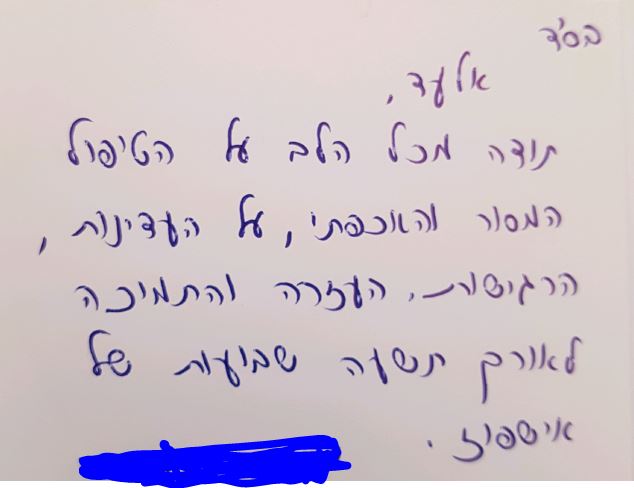 בס"ד
אלעד,
תודה מכל הלב על הטיפול
המסור והאכפתי, על העדינות,
הרגישות, העזרה והתמיכה
לאורך תשעה שבועות של
אישפוז.